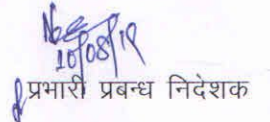 10/08/19
प्रभारी प्रबन्ध निदेशक